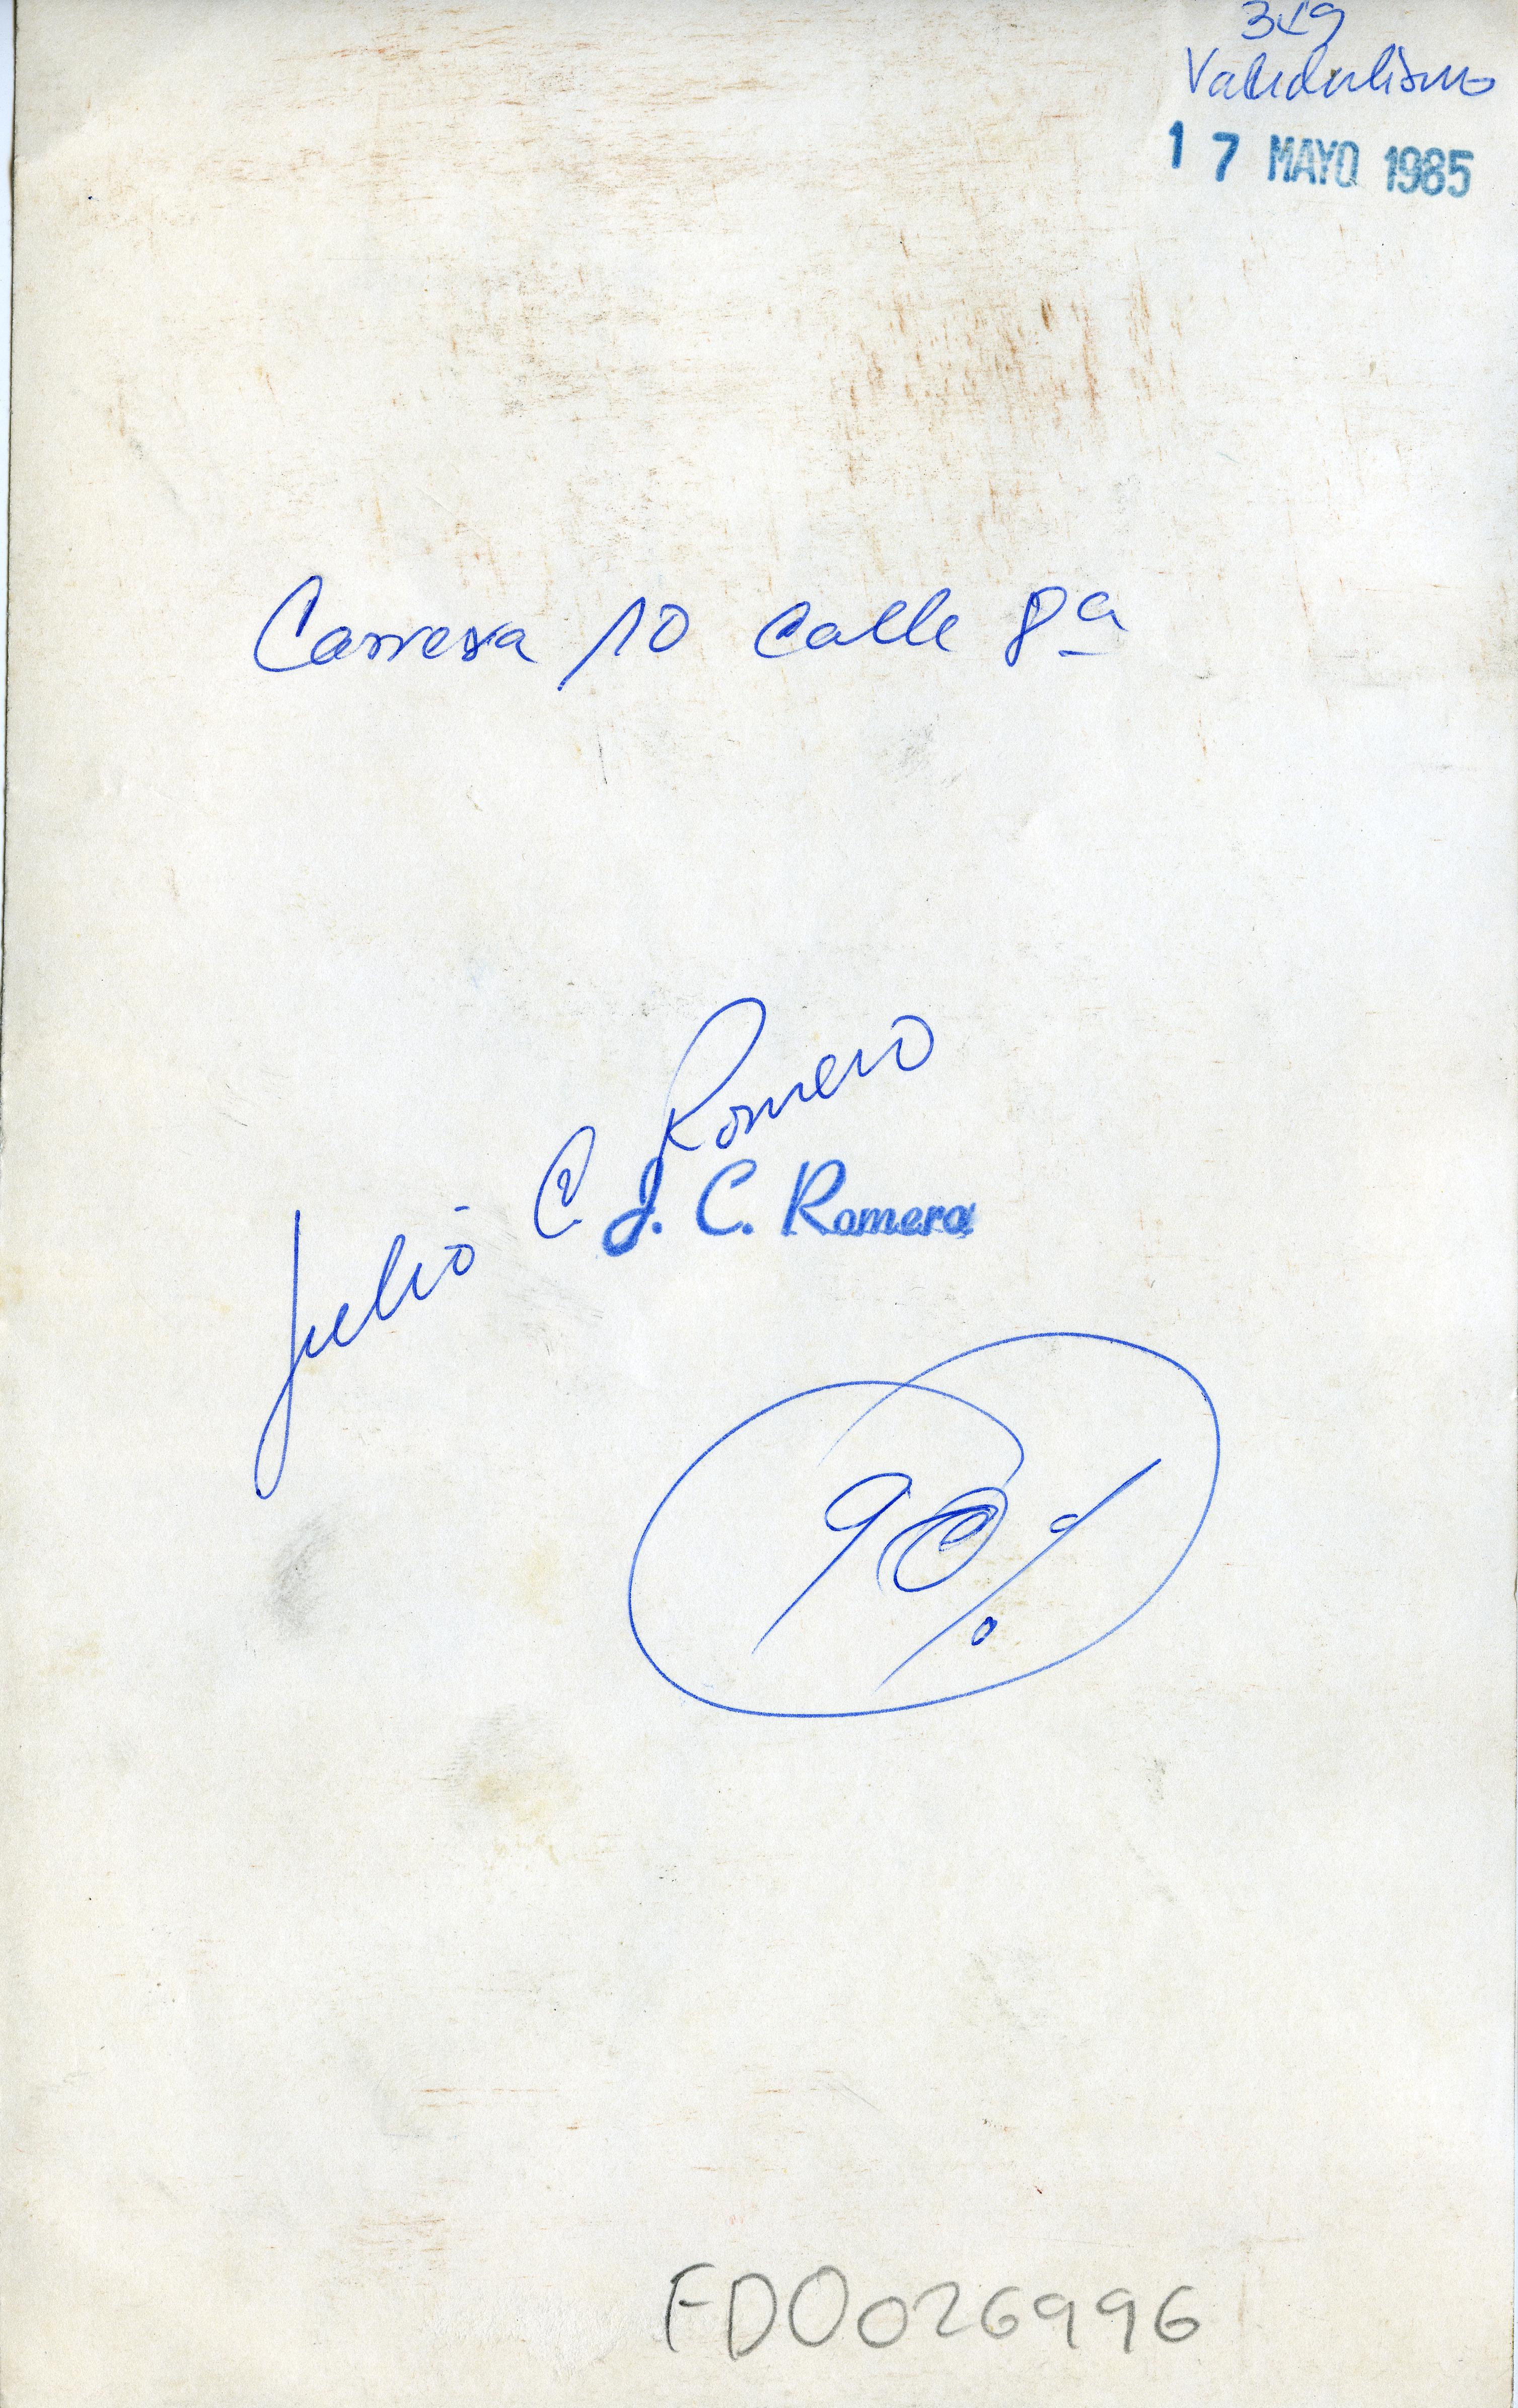 319
Vandalismo
17 MAYO 1985
Carrera 10 calle 8ª
Julio C. Romero
J. C. Romero
90%
FD0026996